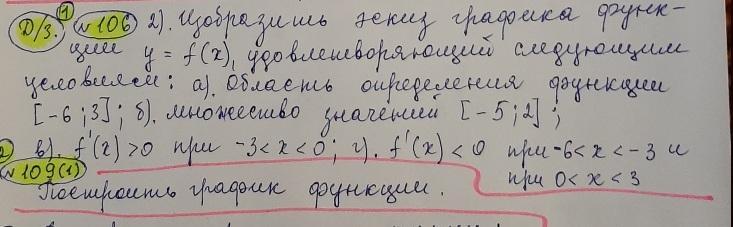 Д/з. 1) №106 2). Изобразить эскиз графика функ-
ции y = f(x), удовлетворяющий следующим
условием: а). Область определения функции
[-6;3]; б). множество значений [-5;2];
2 в). f'(x)>0 при -3<x<0; г). f'(x)<0 при -6<x<-3 и
№109(1) при 0<x<3
Построить график функции.